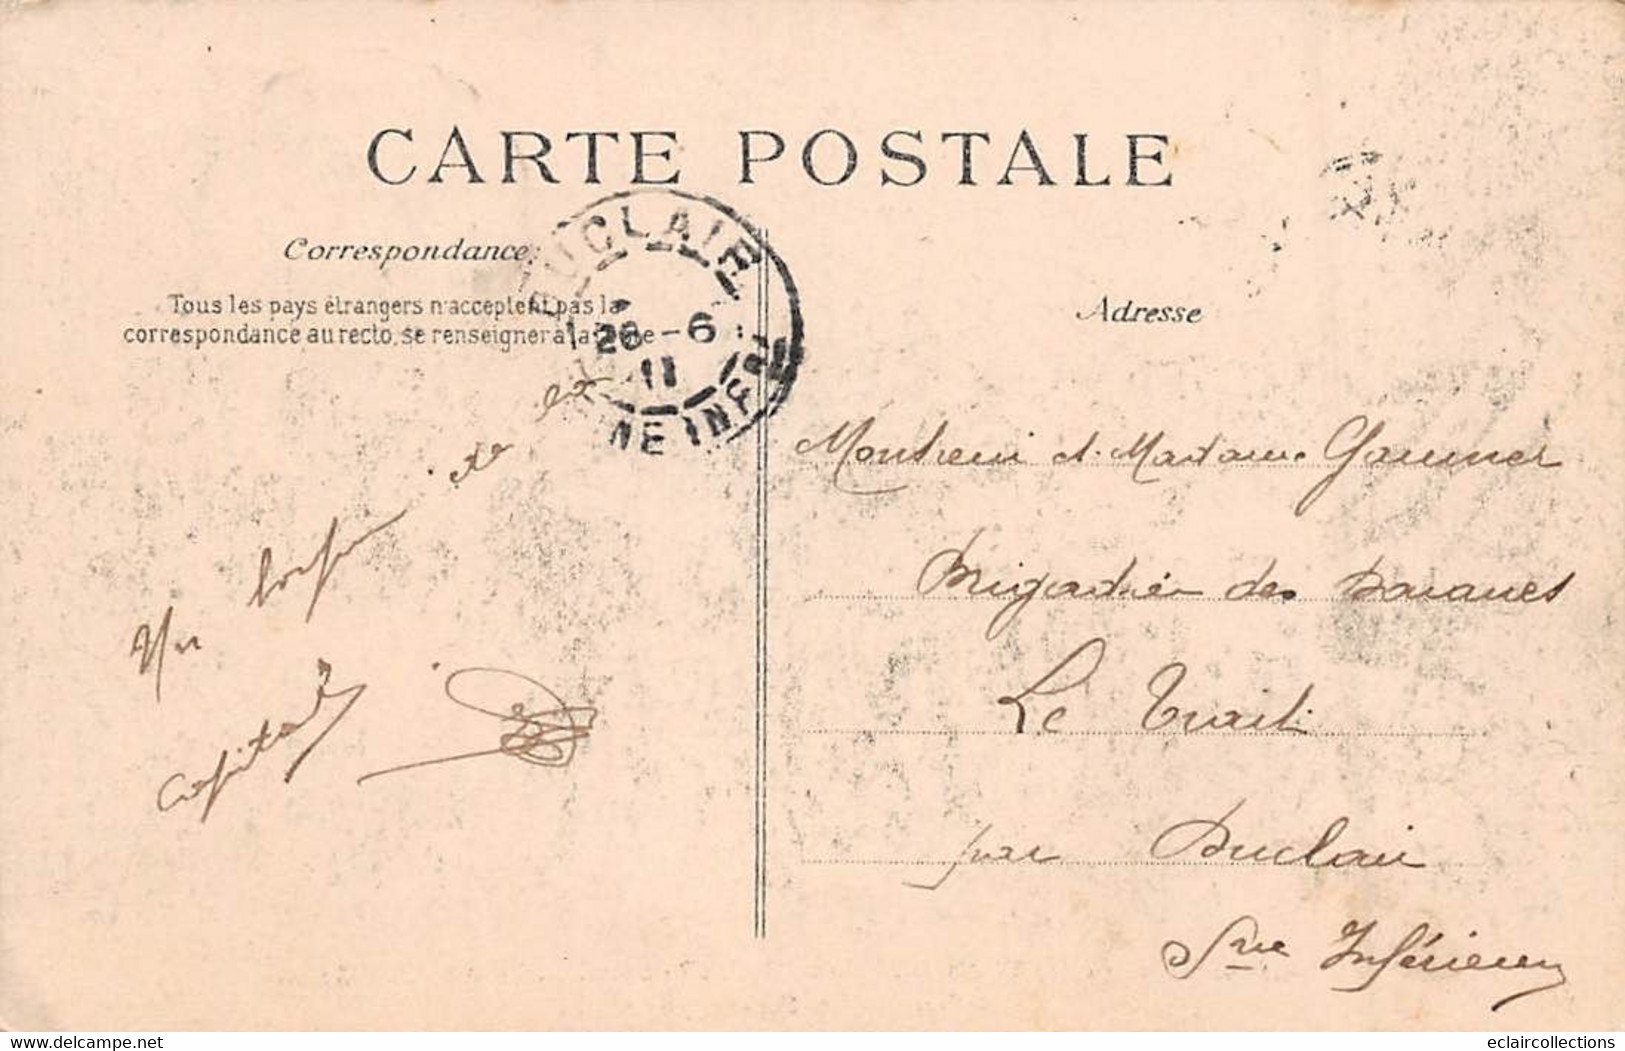 CARTE POSTALE
Correspondance
Tous les pays étrangers n'acceptent pas la
correspondance au recto, se renseigner à la Poste
DUCLAIR
26 - 6
11
INFRE
Adresse
Monsieur et Madame
Brigadier des Douanes
Le Trait
par Duclair
Sne Inférieure
Un
capitale
www.delcampe.net
eclaircollections